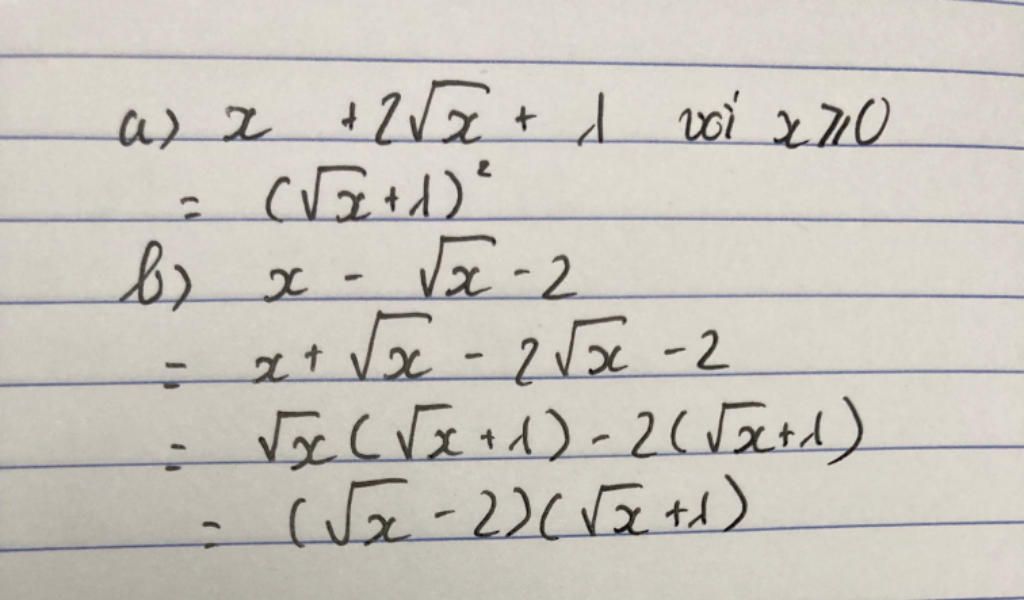 a) x + 2√x + 1 với x ⩾ 0
= (√x + 1)²
b) x - √x - 2
= x + √x - 2√x - 2
= √x (√x + 1) - 2(√x + 1)
= (√x - 2)(√x + 1)